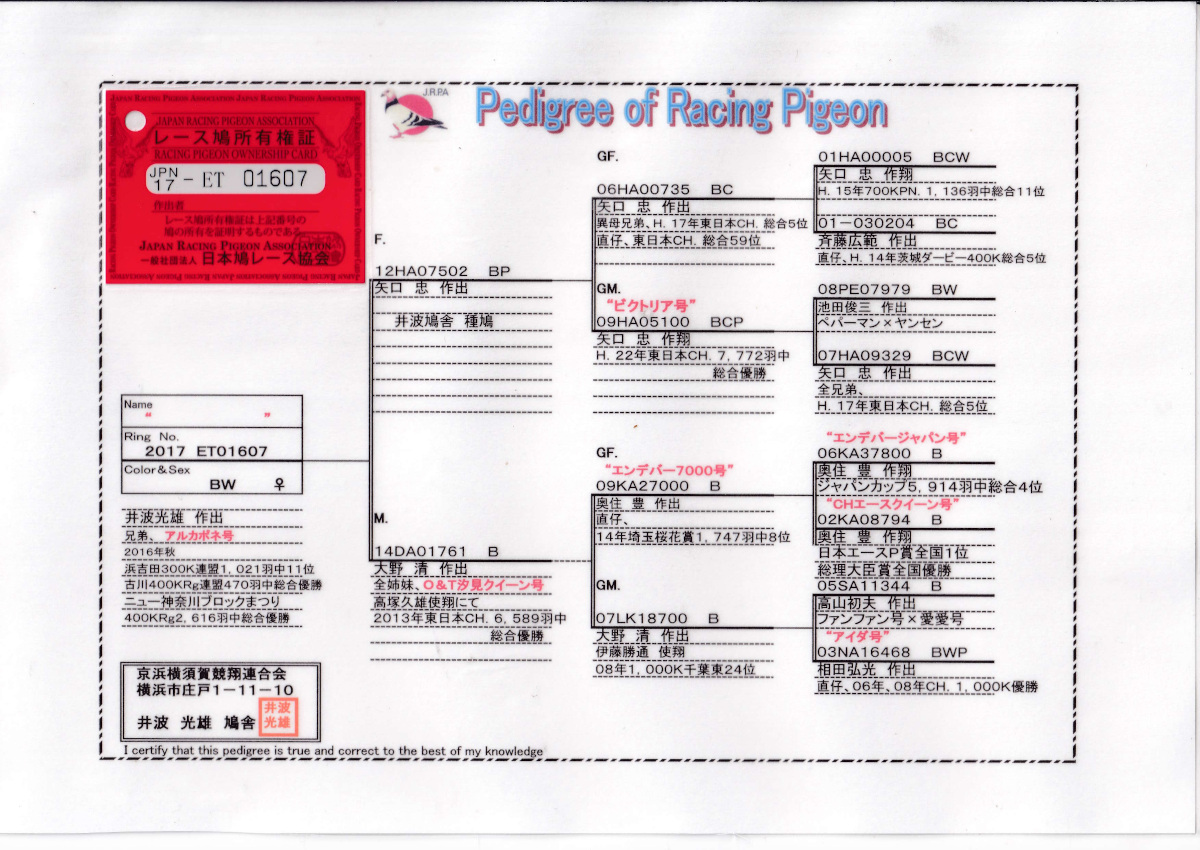 JAPAN RACING PIGEON ASSOCIATION JAPAN RACING PIGEON ASSOCIATION
JAPAN RACING PIGEON ASSOCIATION
レース鳩所有権証
RACING PIGEON OWNERSHIP CARD
JPN 17 - ET 01607
作出者
レース鳩所有権証は上記番号の
鳩の所有を証明するものである。
JAPAN RACING PIGEON ASSOCIATION
一般社団法人 日本鳩レース協会
J.R.P.A
Pedigree of Racing Pigeon
Name
“ ”
Ring No.
2017 ET01607
Color&Sex
BW ♀
井波光雄 作出
兄弟、アルカポネ号
2016年秋
浜吉田300K連盟1, 021羽中11位
古川400KRg連盟470羽中総合優勝
ニュー神奈川ブロックまつり
400KRg2, 616羽中総合優勝
京浜横須賀競翔連合会
横浜市庄戸1-11-10
井波 光雄 鳩舎
井波
光雄
I certify that this pedigree is true and correct to the best of my knowledge
F.
12HA07502 BP
矢口 忠 作出
井波鳩舎 種鳩
M.
14DA01761 B
大野 清 作出
全姉妹、O&T汐見クイーン号
高塚久雄使翔にて
2013年東日本CH. 6, 589羽中
総合優勝
GF.
06HA00735 BC
矢口 忠 作出
異母兄弟、H. 17年東日本CH. 総合5位
直仔、東日本CH. 総合59位
GM.
“ビクトリア号”
09HA05100 BCP
矢口 忠 作翔
H. 22年東日本CH. 7, 772羽中
総合優勝
GF.
“エンデバー7000号”
09KA27000 B
奥住 豊 作出
直仔、
14年埼玉桜花賞1, 747羽中8位
GM.
07LK18700 B
大野 清 作出
伊藤勝通 使翔
08年1, 000K千葉東24位
01HA00005 BCW
矢口 忠 作翔
H. 15年700KPN. 1, 136羽中総合11位
01-030204 BC
斉藤広範 作出
直仔、H. 14年茨城ダービー400K総合5位
08PE07979 BW
池田俊三 作出
ペパーマン×ヤンセン
07HA09329 BCW
矢口 忠 作出
全兄弟、
H. 17年東日本CH. 総合5位
“エンデバージャパン号”
06KA37800 B
奥住 豊 作翔
ジャパンカップ5, 914羽中総合4位
“CHエースクイーン号”
02KA08794 B
奥住 豊 作翔
日本エースP賞全国1位
総理大臣賞全国優勝
05SA11344 B
高山初夫 作出
ファンファン号×愛愛号
“アイダ号”
03NA16468 BWP
相田弘光 作出
直仔、06年、08年CH. 1, 000K優勝